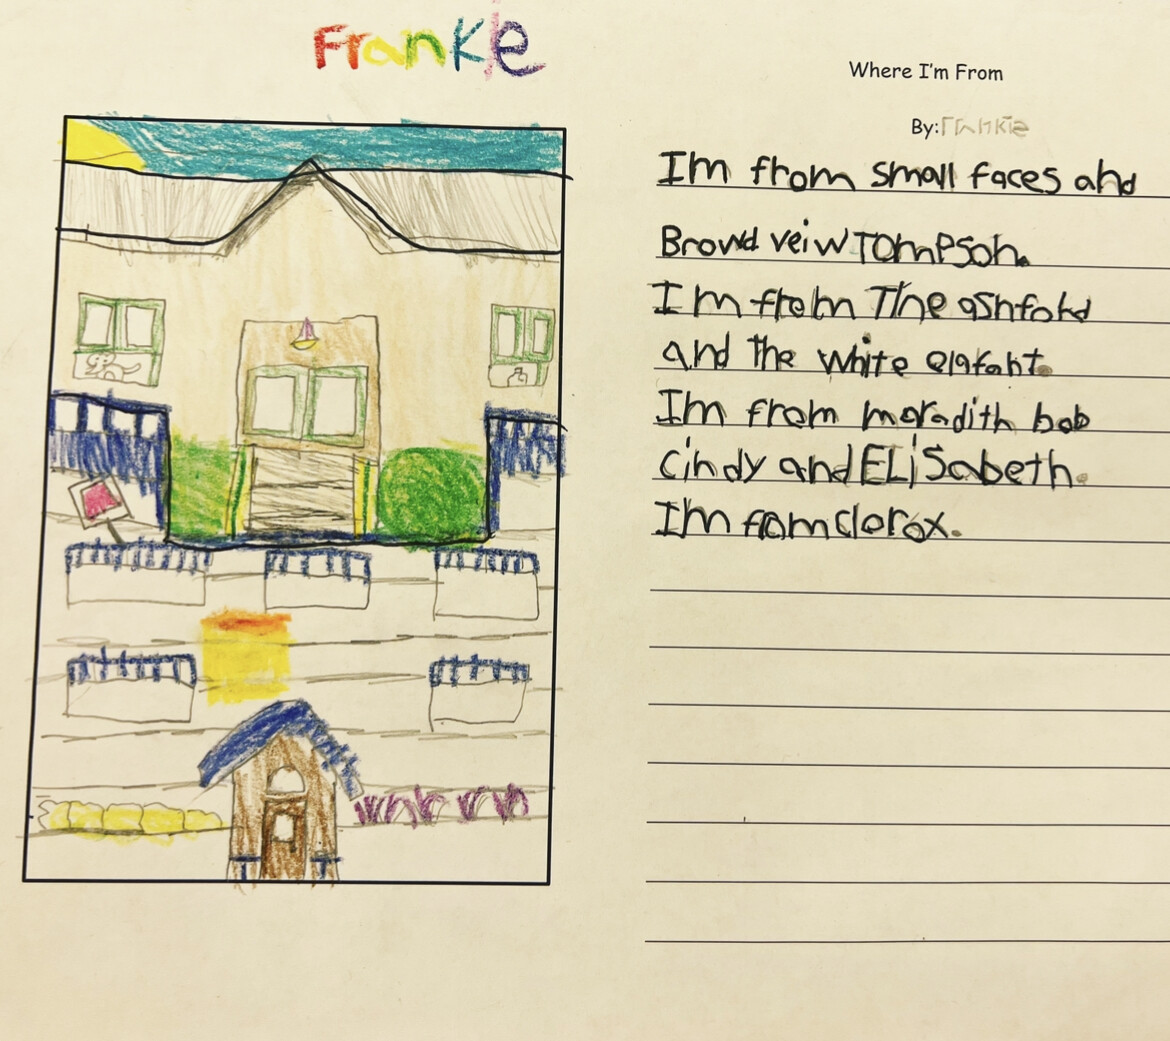 Frankie
Where I'm From
By: Frankie
Im from small faces and
Browd veiw Tompson.
I m from The ashford
and the white elafant.
Im from moradith bob
Cindy and ELiSabeth.
I'm fromclorox.